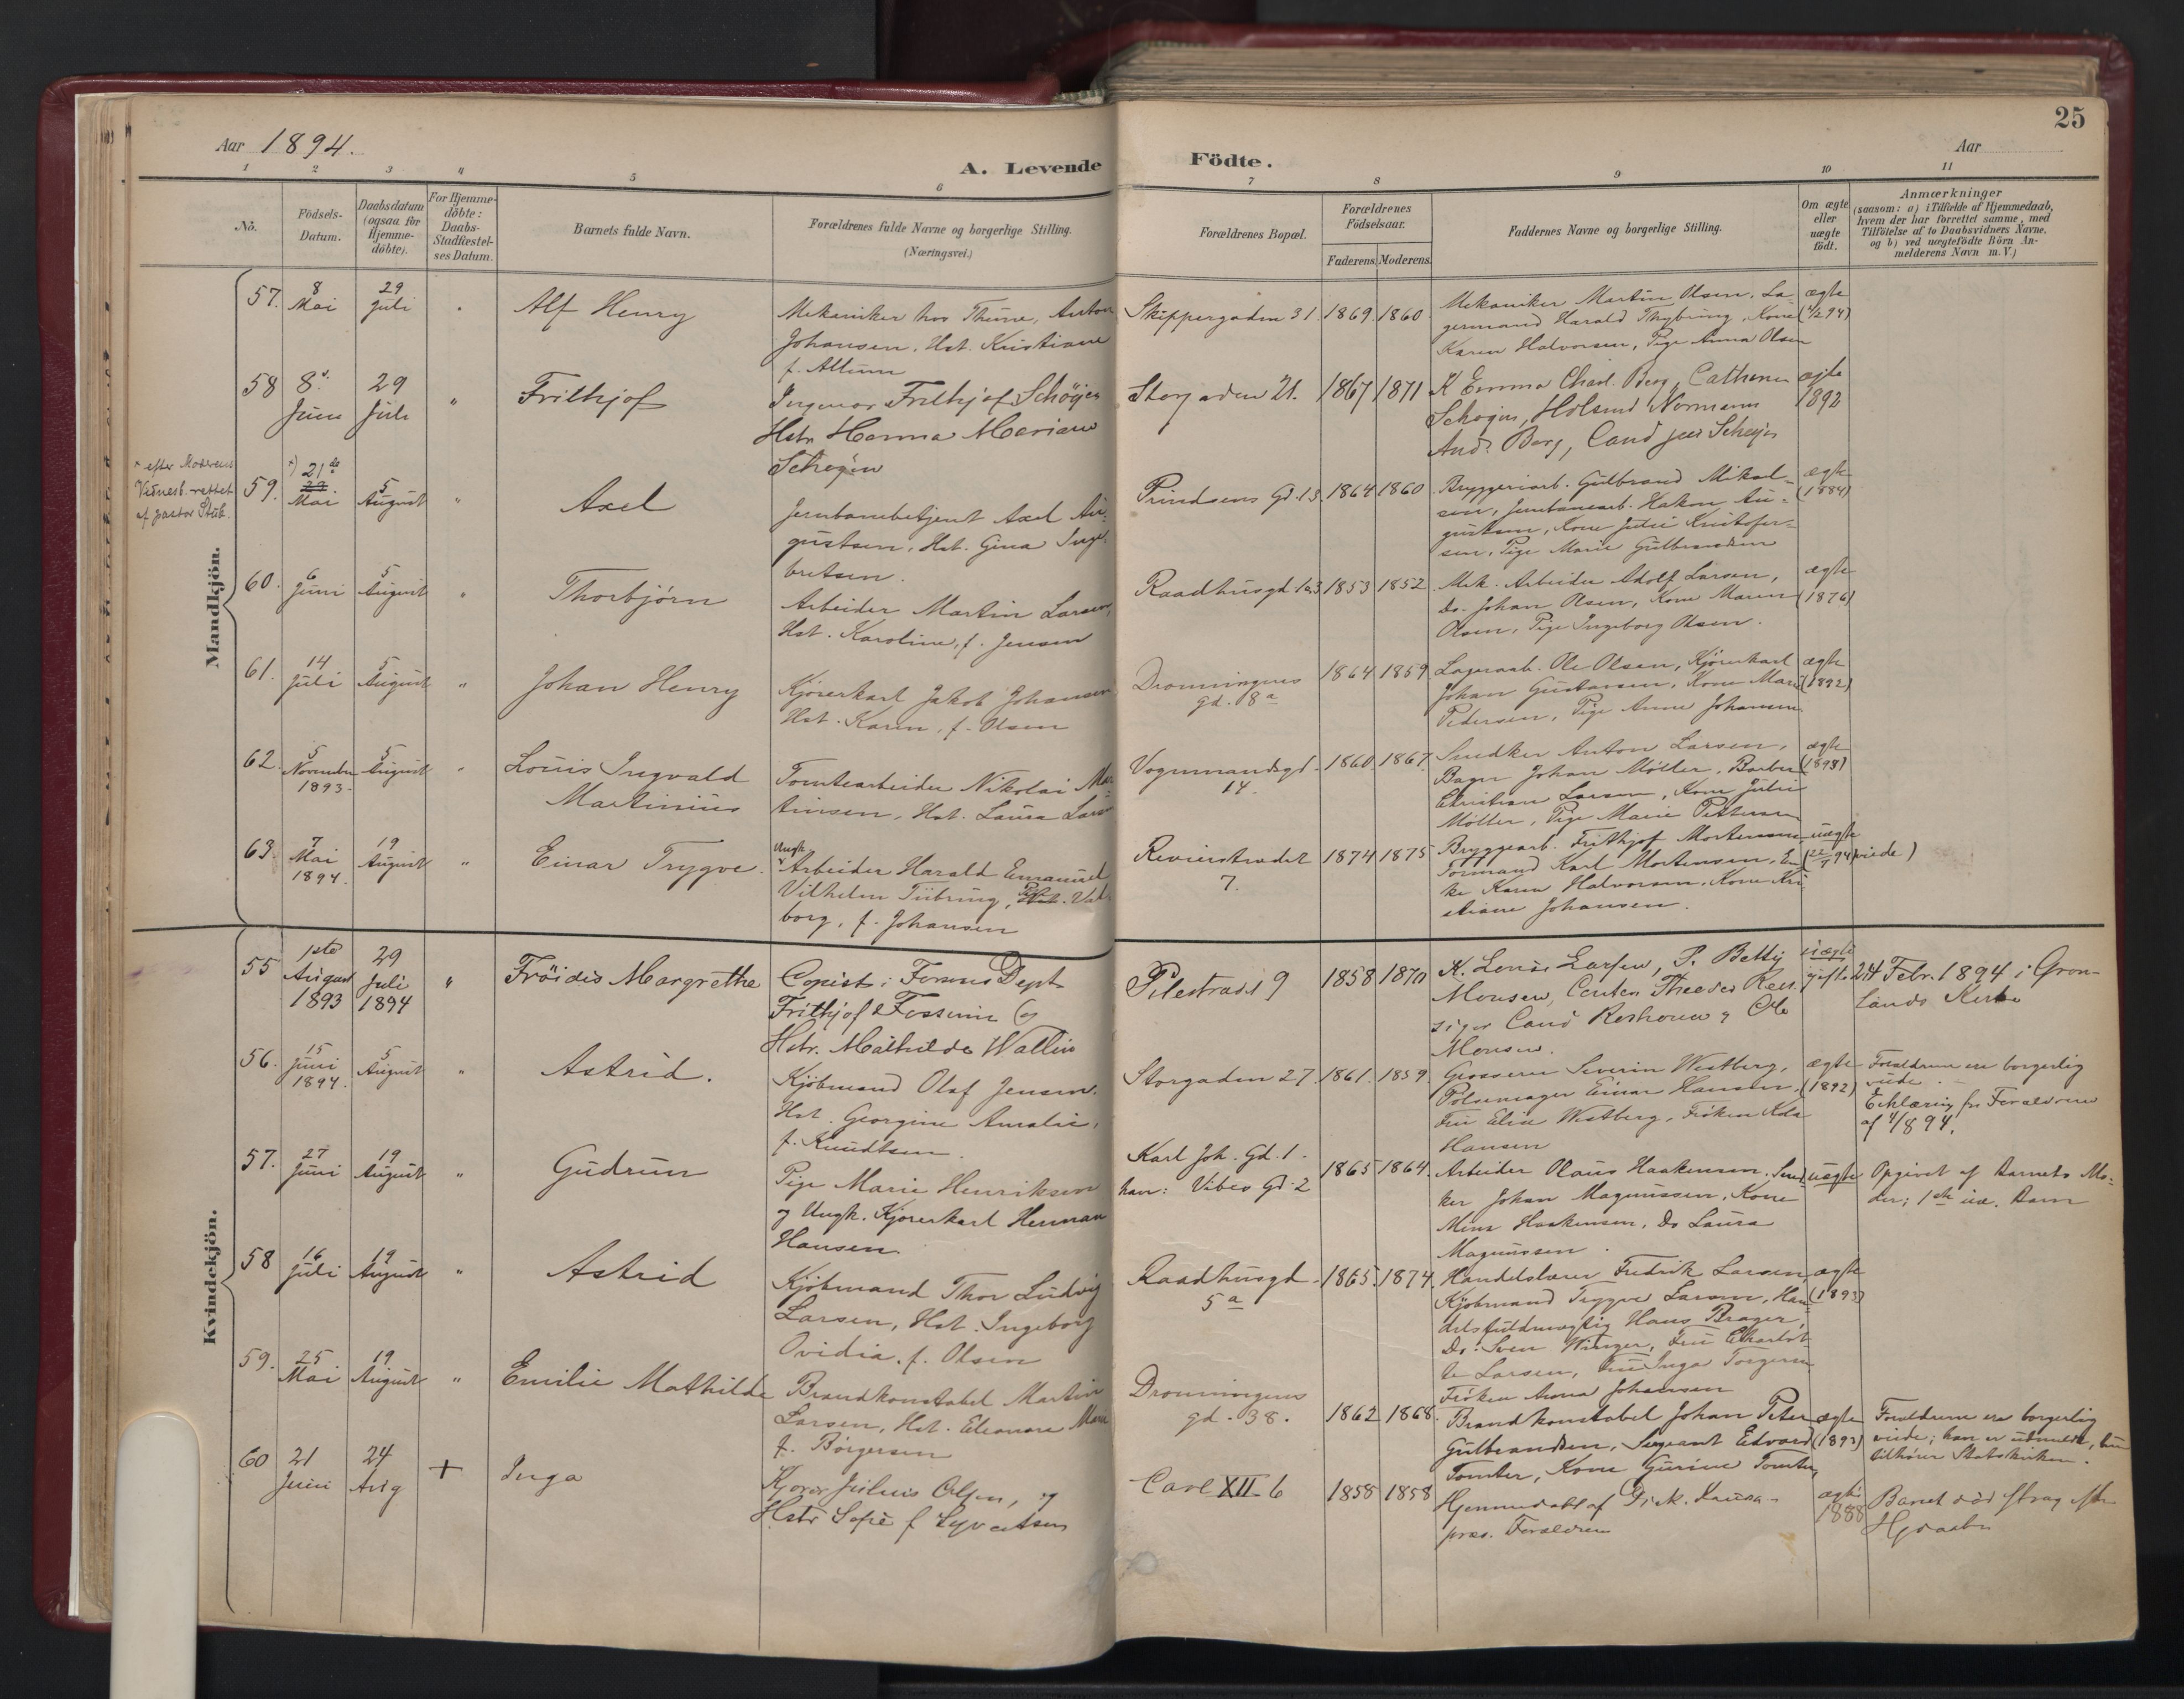 25
Aar 1894.
Aar
A. Levende Födte.
1 2 3 4 5 6 7 8 9 10 11
No.
Födsels-
Datum.
Daabsdatum
(ogsaa for
Hjemme-
döbte).
For Hjemme-
döbte:
Daabs-
Stadfæstel-
ses Datum.
Barnets fulde Navn.
Forældrenes fulde Navne og borgerlige Stilling.
(Næringsvei.)
Forældrenes Bopæl.
Forældrenes
Födselsaar.
Faderens. Moderens.
Faddernes Navne og borgerlige Stilling.
Om ægte
eller
uægte
födt.
Anmærkninger
(saasom: a) i Tilfælde af Hjemmedaab,
hvem der har forrettet samme, med
Tilföielse af to Daabsvidners Navne,
og b) ved uægtefödte Börn An-
melderens Navn m. V.)
Mandkjön.
57. 8 Mai 29 Juli
Alf Henry
Mekaniker hos Thune, Anton
Johansen, Hst. Kristiane
f. Altum
Skippergaden 31. 1869. 1860.
Mekaniker Martin Olsen, La-
germand Harald Thybring, Kone
Karen Halvorsen, Pige Anna Olsen
ægte
58 8. Juni 29 Juli "
Frithjof
Ingeniør Frithjof Schøyen
Hstr Hanna Mariane
Schøyen
Storgaden 21. 1867 1871
K Emma Charl. Berg, Cathrine
Schøyen, Normann
And. Berg, Cand jur Schøyen
ægte
1892
* efter Moderens
Vidnesb. rettet
af pastor Stub.
59. *) 21de 29 Mai 5 August "
Axel
Jernbanebetjent Axel Au-
gustsen, Hst. Gina Inge-
bretsen.
Prindsens Gd. 13. 1864 1860
Bryggeriarb. Gulbrand Mikal-
sen, Jernbanearb. Hakon Au-
gustsen, Kone Julie Kristofer-
sen, Pige Marie Gulbrandsen
ægte
(1884)
60. 6 Juni 5 August "
Thorbjørn
Arbeider Martin Larsen,
Hst. Karoline, f. Jensen
Raadhusgd 1853 1852.
Mek. Arbeider Adolf Larsen,
Do. Johan Olsen, Kone Maren
Olsen, Pige Ingeborg Olsen.
ægte
(1876)
61. 14 Juli 5 August "
Johan Henry
Kjørerkarl Jakob Johansen
Hst. Karen, f. Olsen
Dronningens
gd. 18a
1864 1859
Lagerarb. Ole Olsen, Kjørerkarl
Johan Gustavsen, Kone Marie
Pedersen, Pige Anne Johansen.
ægte
(1892)
62. 5 November 1893. 5 August "
Louis Ingvald
Martinius
Tomtearbeider Nikolai Mar-
tinsen, Hst. Laura Larsen
Vognmandsgd.
14.
1860. 1867.
Snedker Anton Larsen,
Bager Johan Møller, Barber
Christian Larsen, Kone Julie
Møller, Pige Marie Pettersen
ægte
(1893)
63. 7 Mai 1894. 19 August "
Einar Trygve.
Ungk.
Arbeider Harald Emanuel
Vilhelm Tübring, Val-
borg, f. Johansen
Revierstrædet
7.
1874 1875
Bryggearb. Frithjof Mortensen,
Formand Karl Mortensen, En-
ke Karen Halvorsen, Kone Kri-
stiane Johansen.
uægte
(22/7 94 viede)
Kvindekjön.
55 1ste August 1893 29 Juli 1894 "
Fröidis Margrethe
Copist i Dept
Frithjof og
Hstr. Mathilde Wallin
Pilestrædet 9 1858 1870
K. Lovise Larsen, P. Betty
Monsen, Theodor
Cand & Ole
Monsen.
uægte
gifte 24 Febr. 1894 i Grøn-
lands Kirke
56. 15 Juni 1894. 5 August "
Astrid.
Kjøbmand Olaf Jensen.
Hst. Georgine Amalie,
f. Knudtsen.
Storgaden 27. 1861. 1859.
Grosserer Severin Westberg,
Pølsemager Einar Hansen,
Fru Elise Westberg, Frøken Ida
Hansen
ægte
(1892)
Forældrene ere borgerlig
viede.
Erklæring fra Forældrene
af 4/8 94.
57. 27 Juni 19 August "
Gudrun
Pige Marie Henriksen
og Ungk. Kjørerkarl Herman
Hansen
Karl Joh. Gd. 1.
han: Vibes Gd. 2
1865 1864.
Arbeider Olaus Haakensen, Sned-
ker Johan Magnussen, Kone
Mina Haakensen, Do Laura
Magnussen.
uægte
Opgivet af Barnets Mo-
der; 1ste uæ. Barn
58 16 Juli 19 August "
Astrid
Kjøbmand Thor Ludvig
Larsen, Hst. Ingeborg
Ovidia, f. Olsen
Raadhusgd.
5a
1865. 1874.
Handelslærer Fredrik Larsen,
Kjøbmand Trygve Larsen, Han-
delsfuldmægtig Hans Brager,
Do. Sven Winger, Fru Charlot-
te Larsen, Fru Inga Torgersen
Frøken Anna Johansen
ægte
(1893)
59. 25 Mai 19 August "
Emilie Mathilde
Brandkonstabel Martin
Larsen, Hst. Eleonora Marie
f. Børgersen
Dronningens
gd. 38.
1862 1868.
Brandkonstabel Johan Peter
Gulbrandsen, Sergeant Edvard
Tomter, Kone Gurine Tomter,
ægte
(1893)
Forældrene ere borgerlig
viede; han er udmeldt, hun
tilhører Statskirken.
60 21 Juni 24 Aug +
Inga
Kjører Julius Olsen, og
Hstr Sofie f Syvertsen
Carl XII 6 1858 1858
Hjemmedøbt af
præs. Forældrene
ægte
1888
Barnet død strax efter
Hjdaaben